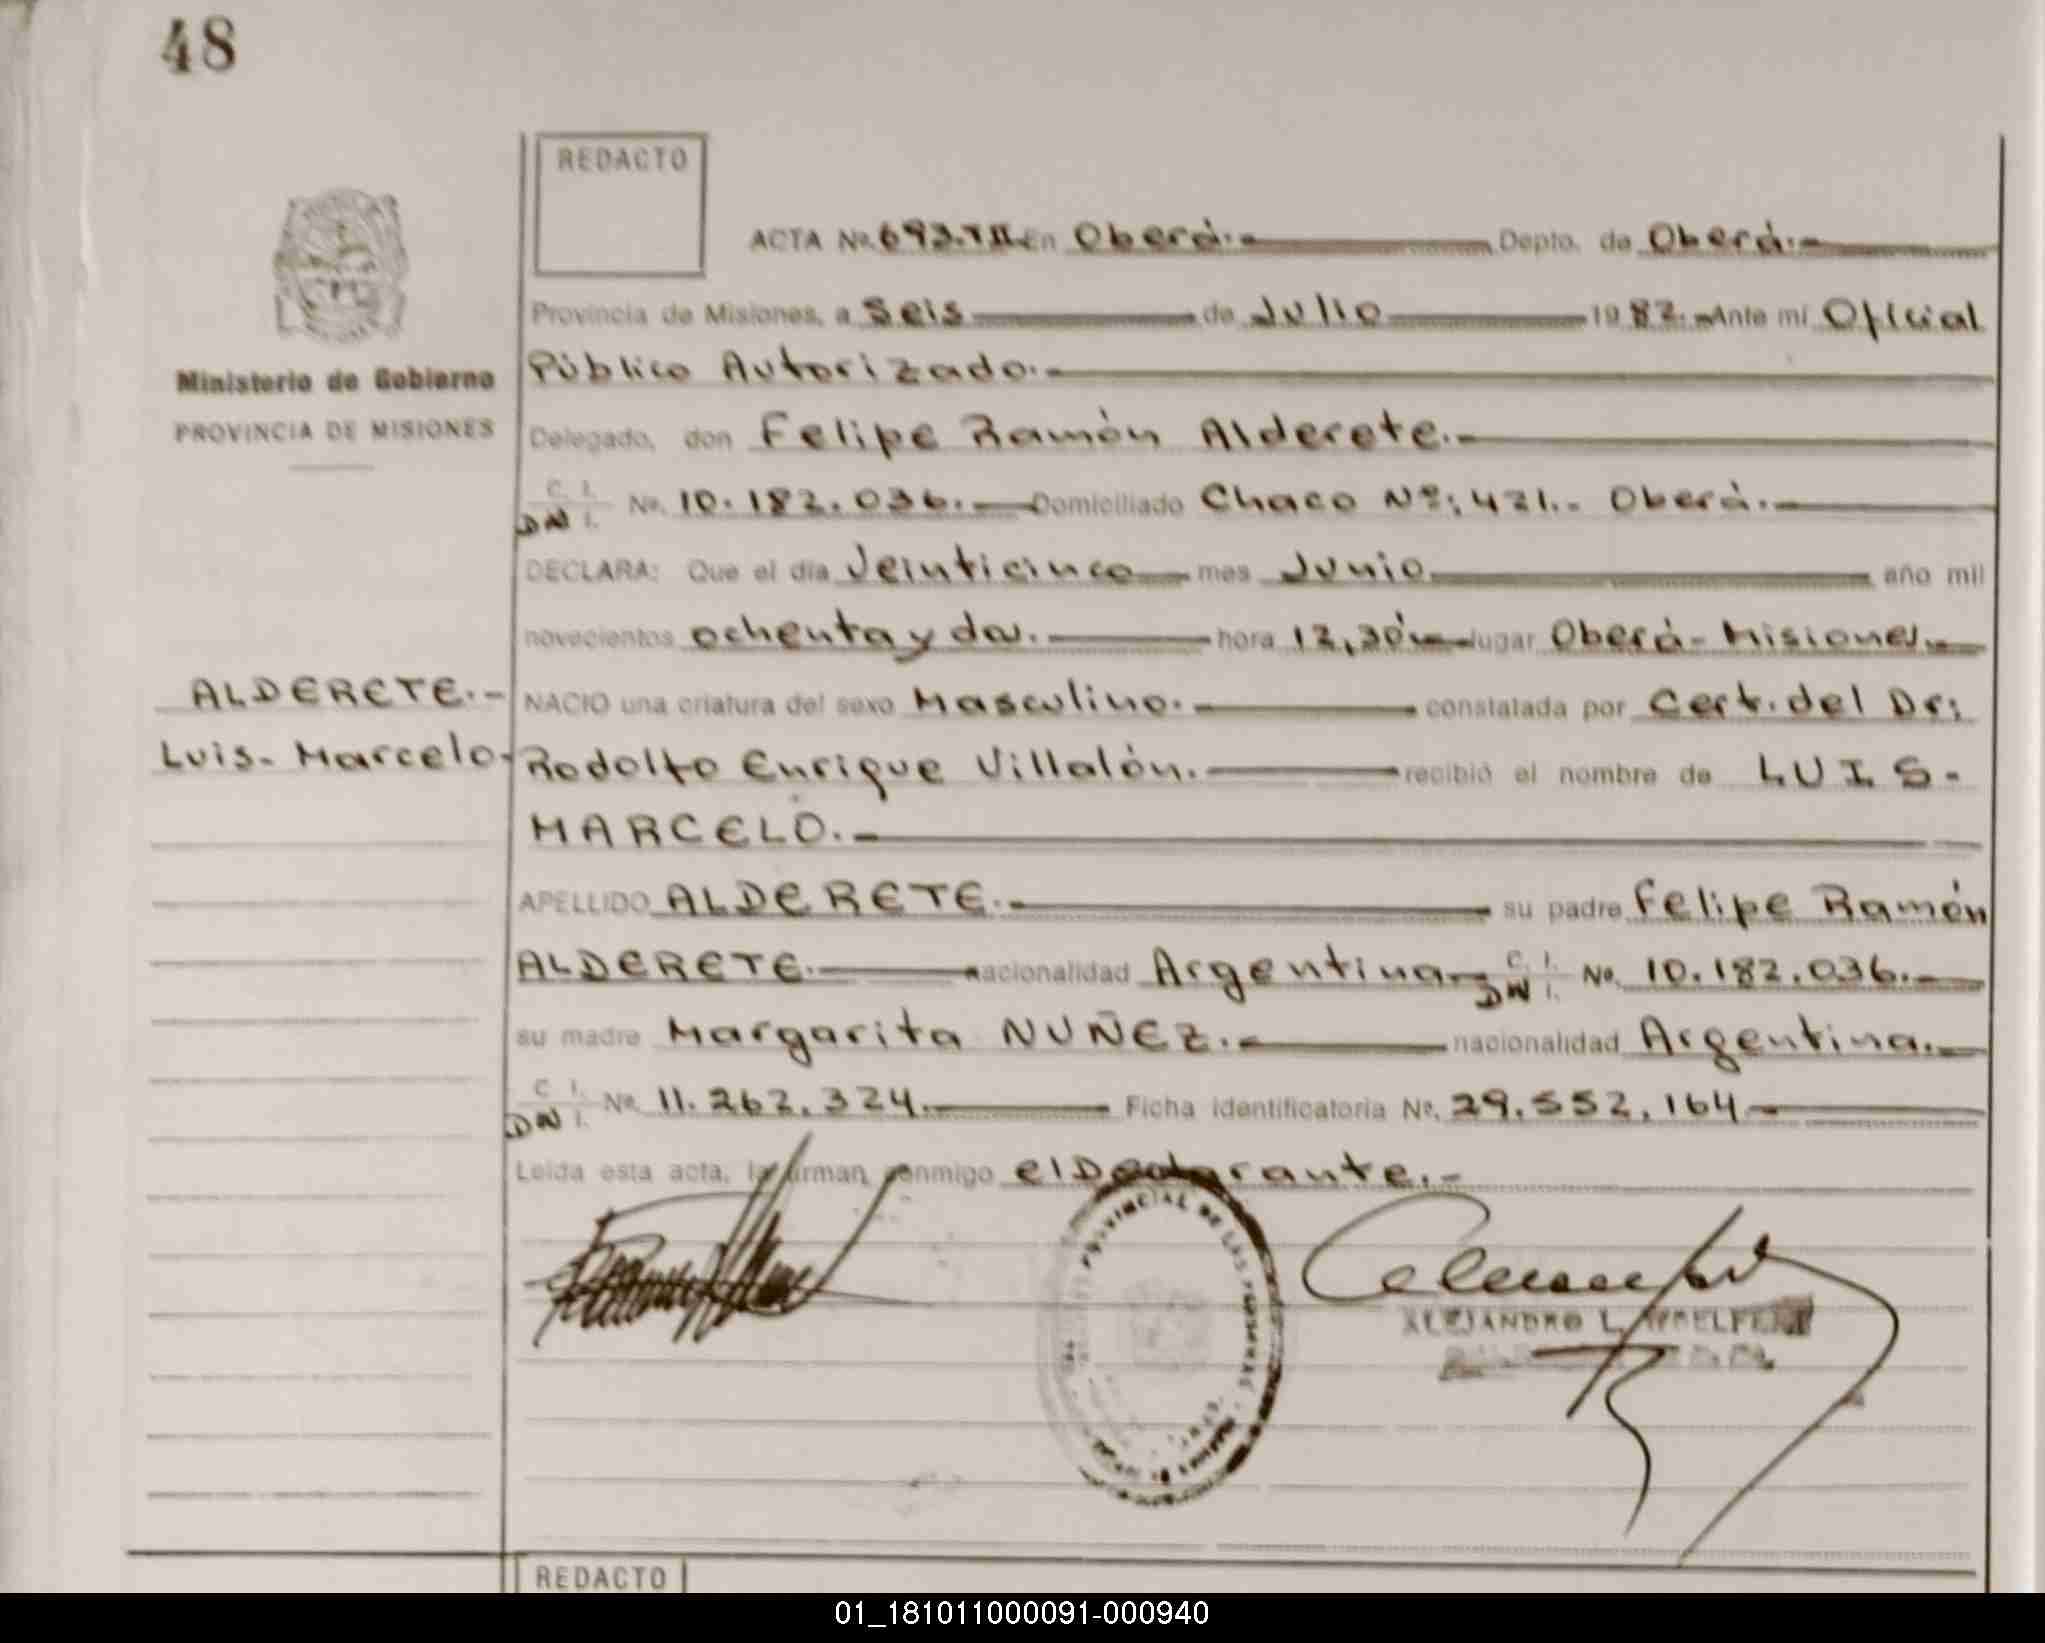 48
REDACTO
ACTA No. 693.TII En Oberá.- Depto. de Oberá.-
Provincia de Misiones, a Seis de Julio 1982.- Ante mí Oficial
Público Autorizado.-
Ministerio de Gobierno
PROVINCIA DE MISIONES
Delegado, don Felipe Ramón Alderete.-
C. I.
DN I. No. 10.182.036.- Domiciliado Chaco Nº: 421.- Oberá.-
DECLARA: Que el día Veinticinco mes Junio año mil
novecientos ochenta y dos. hora 12,30 lugar Oberá - Misiones.-
ALDERETE.-
Luis - Marcelo.
NACIO una criatura del sexo Masculino. constatada por Cert. del Dr;
Rodolfo Enrique Villalón. recibió el nombre de LUIS -
MARCELO.-
APELLIDO ALDERETE.- su padre Felipe Ramón
ALDERETE. nacionalidad Argentina C. I.
DN I. No. 10.182.036.-
su madre Margarita NUÑEZ.- nacionalidad Argentina.-
C I.
DN I. No. 11.262.324. Ficha identificatoria No. 29.552.164
Leída esta acta, la firman conmigo el Declarante.-
PROVINCIAL DE LAS PERSONAS
ALEJANDRO L.
REDACTO
01_181011000091-000940